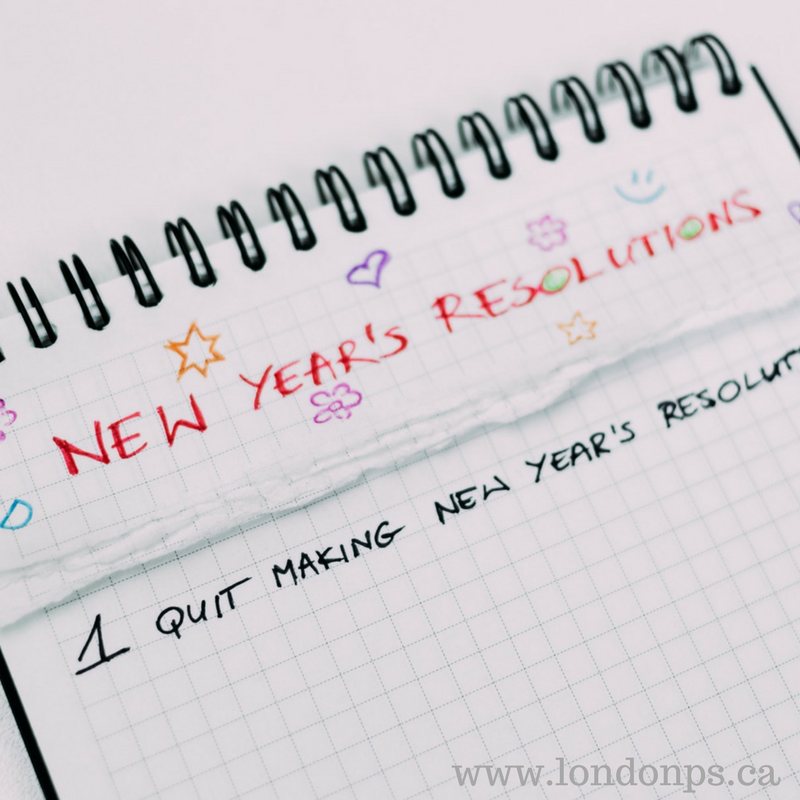 NEW YEAR'S RESOLUTIONS
1 QUIT MAKING NEW YEAR'S RESOLUT
www.londonps.ca